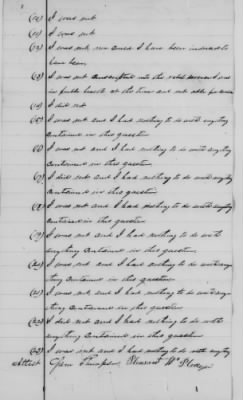 (10) I was not
(11) I was not
(12) I was not nor since I have been informed to have been
(13) I was not conscripted into the rebel service I was
in feeble health at the time and not able for service
(14) I did not
(15) I was not and I had nothing to do with anything
contained in this question
(16) I was not and I had nothing to do with anything
contained in this question
(17) I did not and I had nothing to do with anything
contained in this question
(18) I was not and I had nothing to do with anything
contained in this question
(19) I was not and I had nothing to do with
anything contained in this question
(20) I was not and I had nothing to do with any
thing contained in this question
(21) I was not and I had nothing to do with any
thing contained in this question
(22) I did not and I had nothing to do with
anything contained in this question
(23) I was not and I had nothing to do with anything
Attest Pleasant W